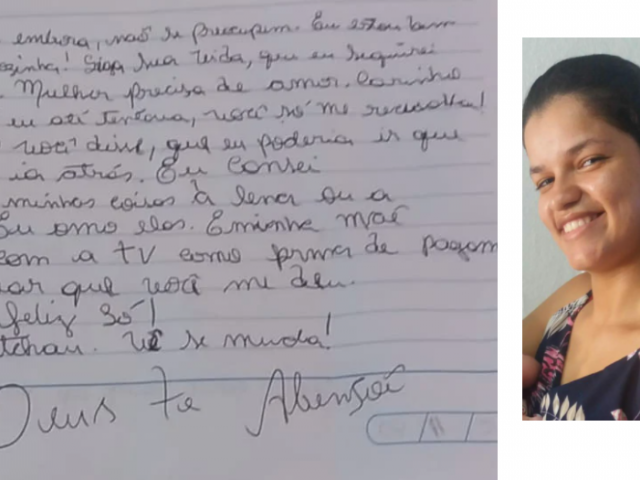 embora, não se preocupem. Eu estou bem
sozinha! Siga sua vida, que eu seguirei
Mulher precisa de amor. Carinho
eu até tentaria, você só me
você disse, que eu poderia ir que
ia atrás. Eu cansei
minhas coisas à Lena ou a
Eu amo elas. E minha mãe
com a TV como forma de pagam
que você me deu.
feliz só!
tchau. se muda!
Deus te Abençoê